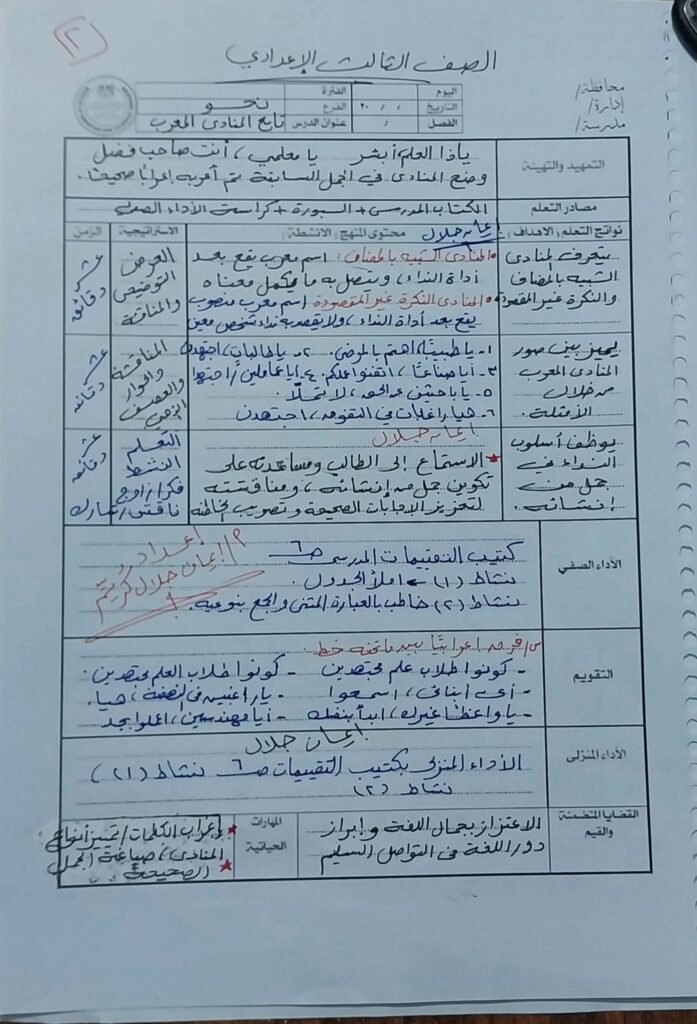 ٢
الصف الثالث الإعدادي
محافظة/
إدارة/
مدرسة/
اليوم
الفترة
التاريخ / / ٢٠
الفرع نحو
الفصل /
عنوان الدرس تابع المنادى المعرب
التمهيد والتهيئة
ياذا العلم أبشر يا معلمي، أنت صاحب فضل
وضع المنادى في الجمل السابقة ثم أعربه إعرابًا صحيحًا.
مصادر التعلم
الكتاب المدرسي + السبورة + كراسة الأداء الصفي
نواتج التعلم (الاهداف)
محتوى المنهج (الانشطة)
إيمان جلال
الاستراتيجية
الزمن
يتعرف المنادى
الشبيه بالمضاف
والنكرة غير المقصودة
المنادى الشبيه بالمضاف: اسم معرب يقع بعد
أداة النداء، ويتصل به ما يكمل معناه
المنادى النكرة غير المقصودة اسم معرب منصوب
يقع بعد أداة النداء، ولا يقصد به نداء شخص معين
العرض
التوضيحي
والمناقشة
عشر
دقائق
يميز بين صور
المنادى المعرب
من خلال
الأمثلة.
١- يا طبيبًا، اهتم بالمرضى. ٢- يا طالباتٍ، اجتهدن
٣- أيا صناعًا، اتقنوا عملكم. ٤- أيا عاملين، اجتهدوا
٥- يا باحثين عن الحق، لا تملّوا.
٦- هيا راغبات في التفوق، اجتهدن
المناقشة
والحوار
والعصف
الذهني
عشر
دقائق
يوظف أسلوب
النداء في
جمل من
إنشائه.
إيمان جلال
الاستماع إلى الطالب ومساعدته على
تكوين جمل من إنشائه، ومناقشته
لتعزيز الإجابات الصحيحة وتصويب
التعلم
النشط
فكر/زاوج
ناقش/شارك
عشر
دقائق
الأداء الصفي
كتيب التقييمات المدرسي ص٦
نشاط (١) ← املأ الجدول.
نشاط (٢) خاطب بالعبارة المثنى والجمع بنوعيه.
إعداد
أ/ إيمان جلال كريتم
التقويم
س/ فرق إعرابيًا بين ما تحته خط
- كونوا طلاب علم مجتهدين - كونوا طلاب العلم مجتهدين.
- أي أبنائي، اسمعوا - يا راغبين في النهضة، هيا.
- يا واعظًا غيرك، ابدأ بنفسك - أيا مهندسين، اعملوا بجد
الأداء المنزلى
إيمان جلال
الأداء المنزلي بكتيب التقييمات ص٦ نشاط (١)
نشاط (٢)
القضايا المتضمنة
والقيم
الاعتزاز بجمال اللغة وإبراز
دور اللغة في التواصل السليم
المهارات
الحياتية
إعراب الكلمات / تمييز أنواع
المنادى، صياغة الجمل
الصحيحة